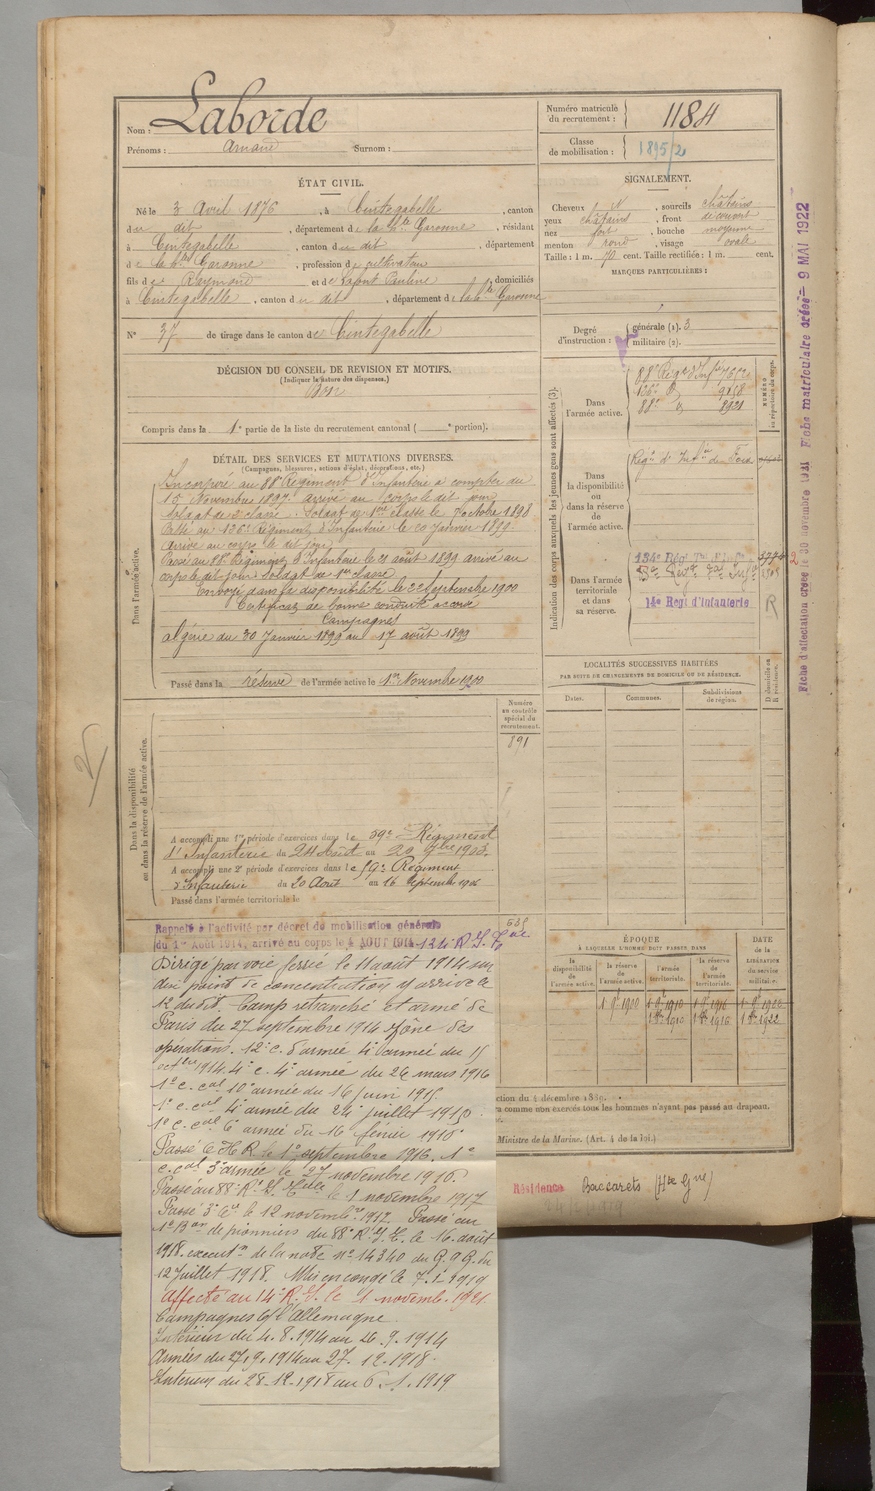 Nom : Laborde
Prénoms : Arnaud Surnom :
Numéro matricule
du recrutement : 1184
Classe
de mobilisation : 1895/2
ÉTAT CIVIL.
Né le 3 Avril 1876, à Cintegabelle, canton
du dit, département de la Hte Garonne, résidant
à Cintegabelle, canton du dit, département
de la Hte Garonne, profession de cultivateur
fils de Raymond et de Lafont Pauline, domiciliés
à Cintegabelle, canton du dit, département de la Hte Garonne
N° 37 de tirage dans le canton de Cintegabelle
SIGNALEMENT.
Cheveux , sourcils châtains
yeux châtains, front découvert
nez fort, bouche moyenne
menton rond, visage ovale
Taille : 1 m. 70 cent. Taille rectifiée : 1 m. cent.
MARQUES PARTICULIÈRES :
Degré
d'instruction :
générale (1). 3
militaire (2).
DÉCISION DU CONSEIL DE REVISION ET MOTIFS.
(Indiquer la nature des dispenses.)
Bon
Compris dans la 1e partie de la liste du recrutement cantonal ( e portion).
DÉTAIL DES SERVICES ET MUTATIONS DIVERSES.
(Campagnes, blessures, actions d'éclat, décorations, etc.)
Dans l'armée active.
Incorporé au 88e Régiment d'Infanterie à compter du
15 Novembre 1897. arrivé au corps le dit jour
soldat de 2e classe. Soldat de 1ere classe le 7 octobre 1898
Passé au 126e Régiment d'Infanterie le 20 Janvier 1899
arrivé au corps le dit jour
Passé au 88e Régiment d'Infanterie le 21 août 1899 arrivé au
corps le dit jour. Soldat de 1ere classe
Envoyé dans la disponibilité le 22 Septembre 1900
Certificat de bonne conduite accordé
Campagnes
Algérie du 30 Janvier 1899 au 17 août 1899
Passé dans la réserve de l'armée active le 1er Novembre 1900
Indication des corps auxquels les jeunes gens sont affectés (3).
NUMÉRO
au répertoire du corps.
Dans
l'armée active.
88e Regt d'Infie
126e d°
88e d° 8921
Dans
la disponibilité
ou
dans la réserve
de
l'armée active.
Regt d'Infie de Foix
Dans l'armée
territoriale
et dans
sa réserve.
134e Régt Tal d'Infie
14e Régt d'Infanterie R
LOCALITÉS SUCCESSIVES HABITÉES
PAR SUITE DE CHANGEMENTS DE DOMICILE OU DE RÉSIDENCE.
Dates. Communes. Subdivisions
de région. D domicile ou
R résidence.
Numéro
au contrôle
spécial du
recrutement.
891
Dans la disponibilité
ou dans la réserve de l'armée active.
A accompli une 1re période d'exercices dans le 59e Régiment
d'Infanterie du 24 Août au 20 7bre 1903.
A accompli une 2e période d'exercices dans le 59e Régiment
d'Infanterie du 20 Août au 16 Septembre 1906
Passé dans l'armée territoriale le
Rappelé à l'activité par décret de mobilisation générale
du 1er Août 1914, arrivé au corps le 4 AOUT 1914 134 R.I.Tale
Dirigé par voie ferrée le 11 août 1914 sur
un point de concentration y arrive le
12 du dit. Camp retranché et armé de
Paris du 27 septembre 1914 zone des
opérations. 12e c. d'armée 4e armée du 15
octbre 1914. 4e c. 4e armée du 26 mars 1916
1e c. cal 10e armée du 16 juin 1915.
1e c. cal 4e armée du 24 juillet 1915.
1e c. cal 6e armée du 16 février 1916
Passé C.H.R. le 1e septembre 1916. 1e
c. cal 3e armée le 27 novembre 1916.
Passé au 88e R.I. Tale le 1 novembre 1917
Passé 3e Cie le 12 novembre 1917. Passé au
1e Bon de pionniers du 88e R.I.T. le 16 août
1918. executn de la note n° 14340 du G.Q.G. du
12 Juillet 1918. Mis en congé le 7.1.1919
Affecté au 14e R.I. le 1 novemb. 1921.
Campagnes c/ l'Allemagne
Intérieur du 4.8.1914 au 26.9.1914
Armées du 27.9.1914 au 27.12.1918.
Intérieur du 28-12-1918 au 6.1.1919
ÉPOQUE
À LAQUELLE L'HOMME DOIT PASSER DANS
la
disponibilité
de
l'armée active.
la réserve
de
l'armée active.
l'armée
territoriale.
la réserve
de
l'armée
territoriale.
DATE
de la
LIBÉRATION
du service
militaire.
1 9bre 1900 1 9bre 1910 1 9bre 1916 1 9bre 1922
ction du 4 décembre 1889.
ra comme non exercés tous les hommes n'ayant pas passé au drapeau.
Ministre de la Marine. (Art. 4 de la loi.)
Résidence Baccarets (Hte Gne)
Fiche d'affectation créée le 30 novembre 1921 Fiche matriculaire créée = 9 MAI 1922